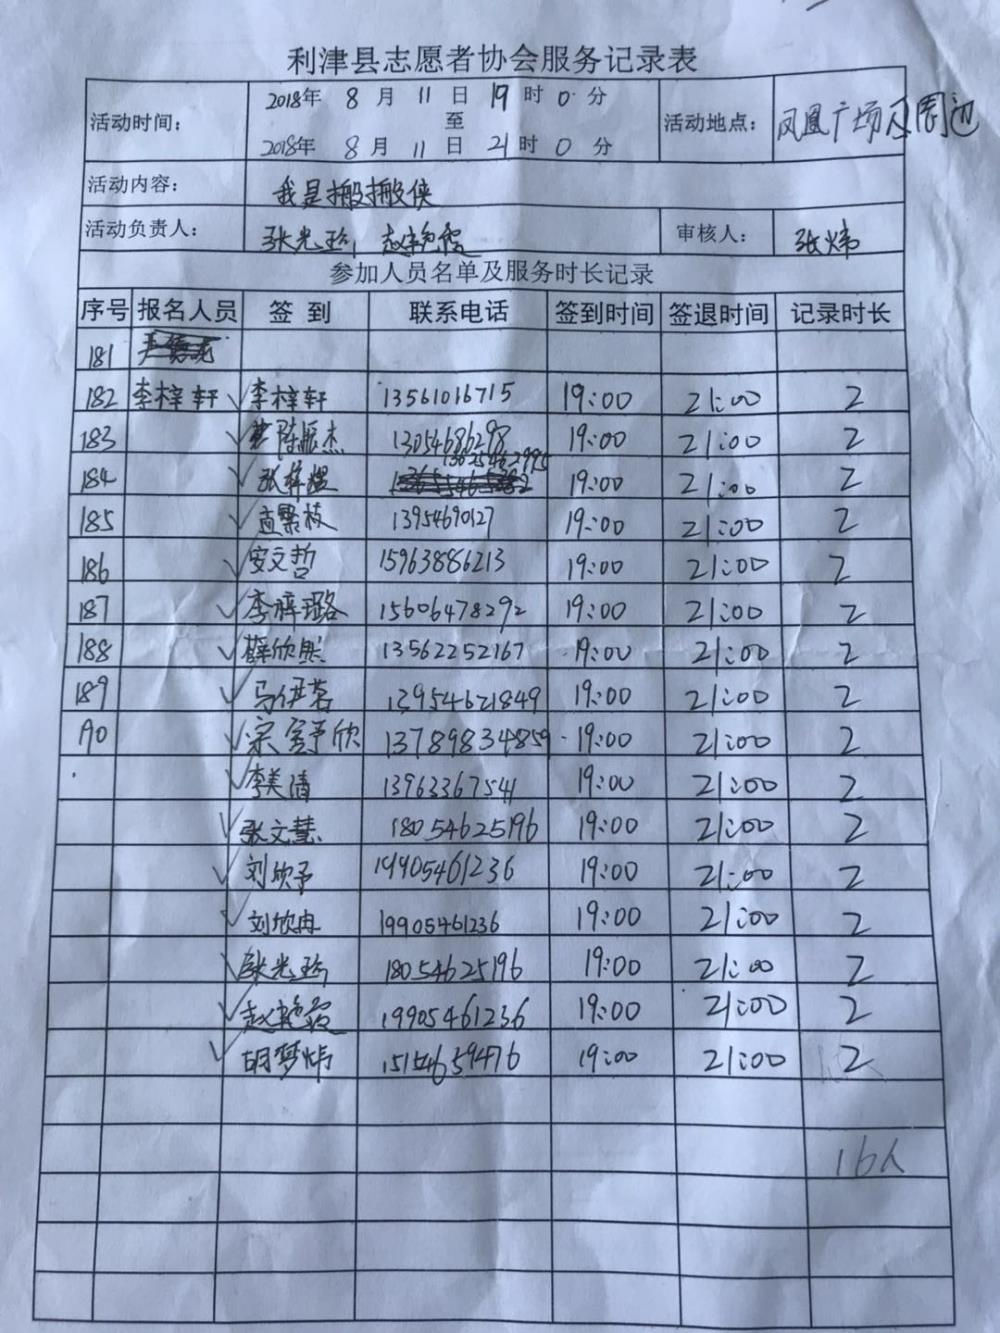 利津县志愿者协会服务记录表
活动时间： 2018年 8 月 11 日 19 时 0 分
至
2018年 8 月 11 日 21 时 0 分
活动地点： 凤凰广场及周边
活动内容： 我是搬搬侠
活动负责人： 张光玲 赵艳霞 审核人： 张炜
参加人员名单及服务时长记录
序号 报名人员 签 到 联系电话 签到时间 签退时间 记录时长
181
182 李梓轩 ✓ 李梓轩 13561016715 19:00 21:00 2
183 ✓ 陈振杰 13054686298 19:00 21:00 2
184 ✓ 19:00 21:00 2
185 ✓ 19:00 21:00 2
186 ✓ 安文哲 15963886213 19:00 21:00 2
187 ✓ 李梓璐 15606478292 19:00 21:00 2
188 ✓ 薛欣然 13562252167 19:00 21:00 2
189 ✓ 马伊茗 13954621849 19:00 21:00 2
190 ✓ 宋舒欣 13789834859 19:00 21:00 2
✓ 李美清 13963367541 19:00 21:00 2
✓ 张文慧 18054625196 19:00 21:00 2
✓ 刘欣予 19905461236 19:00 21:00 2
✓ 刘欣冉 19905461236 19:00 21:00 2
✓ 张光玲 18054625196 19:00 21:00 2
✓ 赵艳霞 19905461236 19:00 21:00 2
✓ 胡梦炜 15154659476 19:00 21:00 2
16人